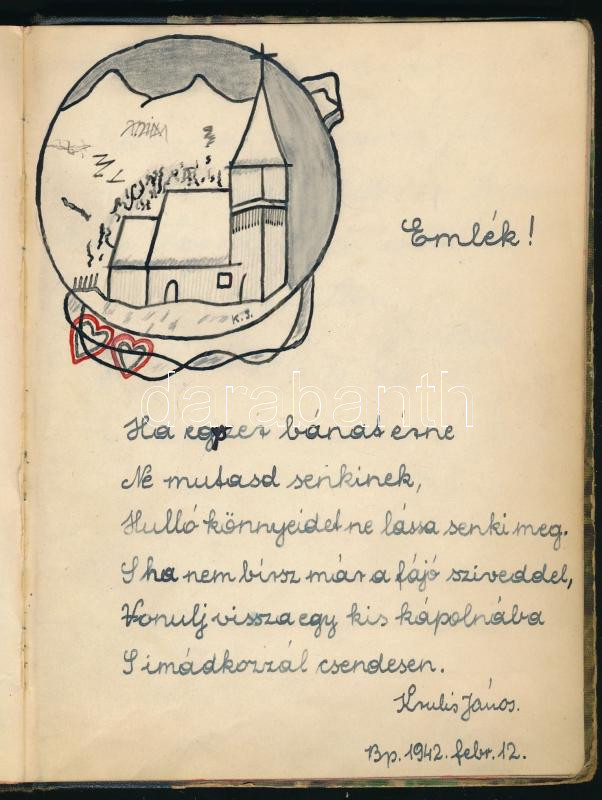 K. J.
Emlék!
Ha egyszer bánat érne
Ne mutasd senkinek,
Hulló könnyeidet ne lássa senki meg.
S ha nem birsz már a fájó sziveddel,
Vonulj vissza egy kis kápolnába
S imádkozzál csendesen.
Krulis János.
Bp. 1942. febr. 12.
darabanth